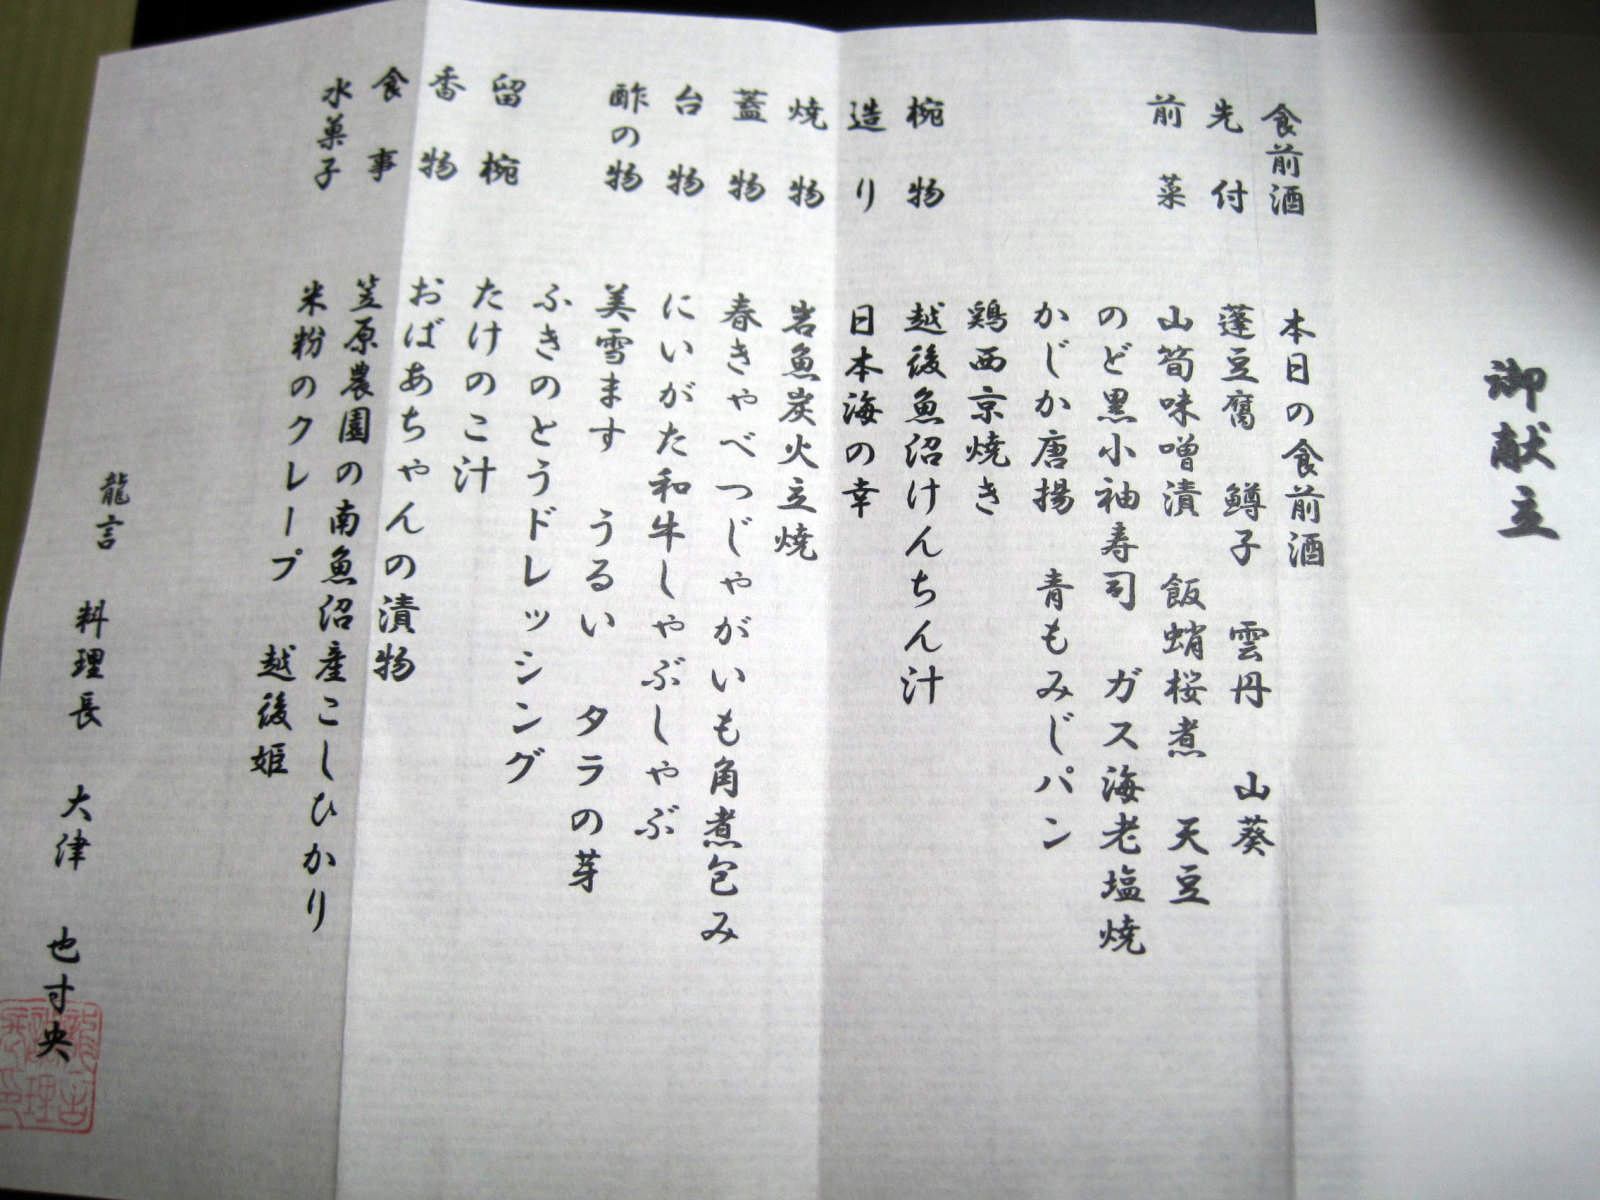 御献立
食前酒 本日の食前酒
先付 蓬豆腐 鱒子 雲丹 山葵
前菜 山筍味噌漬 飯蛸桜煮 天豆
のど黒小袖寿司 ガス海老塩焼
かじか唐揚 青もみじパン
鶏西京焼き
椀物 越後魚沼けんちん汁
造り 日本海の幸
焼物 岩魚炭火立焼
蓋物 春きゃべつじゃがいも角煮包み
台物 にいがた和牛しゃぶしゃぶ
酢の物 美雪ます うるい タラの芽
ふきのとうドレッシング
留椀 たけのこ汁
香物 おばあちゃんの漬物
食事 笠原農園の南魚沼産こしひかり
水菓子 米粉のクレープ 越後姫
龍言 料理長 大津 也寸央